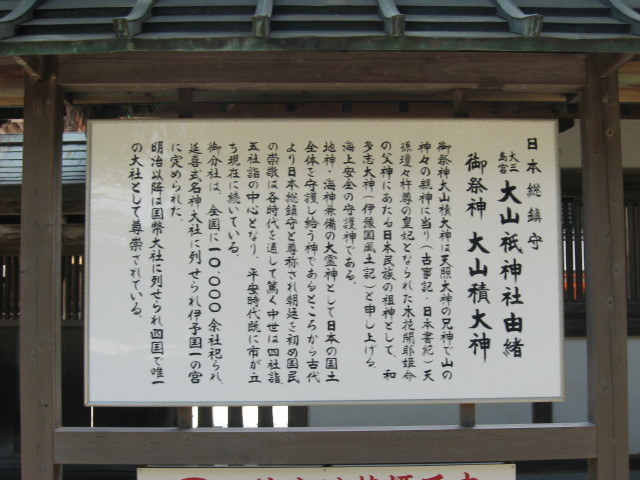 日本総鎮守
大三島宮 大山祇神社由緒
御祭神 大山積大神
御祭神大山積大神は天照大神の兄神で山の
神々の親神に当り(古事記・日本書紀)天
孫瓊々杵尊の皇妃となられた木花開耶姫命
の父神にあたる日本民族の祖神として、和
多志大神(伊豫国風土記)と申し上げる。
海上安全の守護神である。
地神・海神兼備の大霊神として日本の国土
全体を守護し給う神であるところから古代
より日本総鎮守と尊称され朝廷を初め国民
の崇敬は各時代を通して篤く中世は四社詣、
五社詣の中心となり、平安時代既に市が立
ち現在に続いている。
御分社は、全国に一0,000余社祀られ、
延喜式名神大社に列せられ伊予国一の宮
に定められた。
明治以降は国幣大社に列せられ四国で唯一
の大社として尊崇されている。